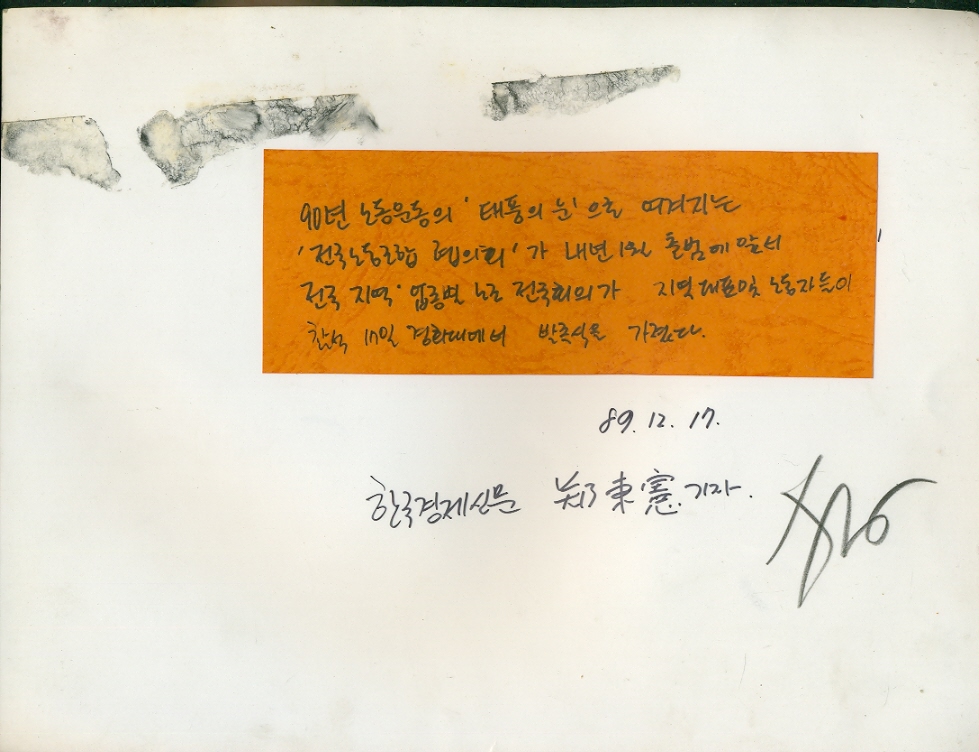 90년 노동운동의 '태풍의 눈'으로 여겨지는
'전국노동조합 협의회'가 내년 1월 출범에 앞서
전국 지역·업종별 노조 전국회의가 지역대표및 노동자들이
참석 17일 경희대에서 발족식을 가졌다.
89. 12. 17.
한국경제신문 鄭東憲 기자.